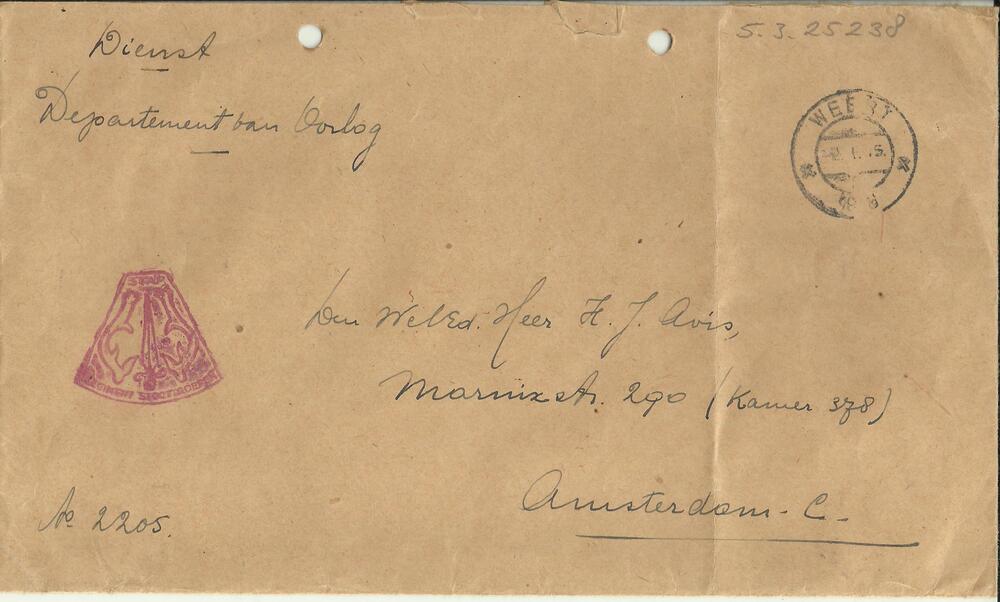 5.3.25238
Dienst
Departement van Oorlog
WEERT
REGIMENT STOOTTROEPEN
Den WelEd. Heer H. J. Avis,
Marnixstr. 290 (Kamer 378)
Amsterdam - C.
No 2205.